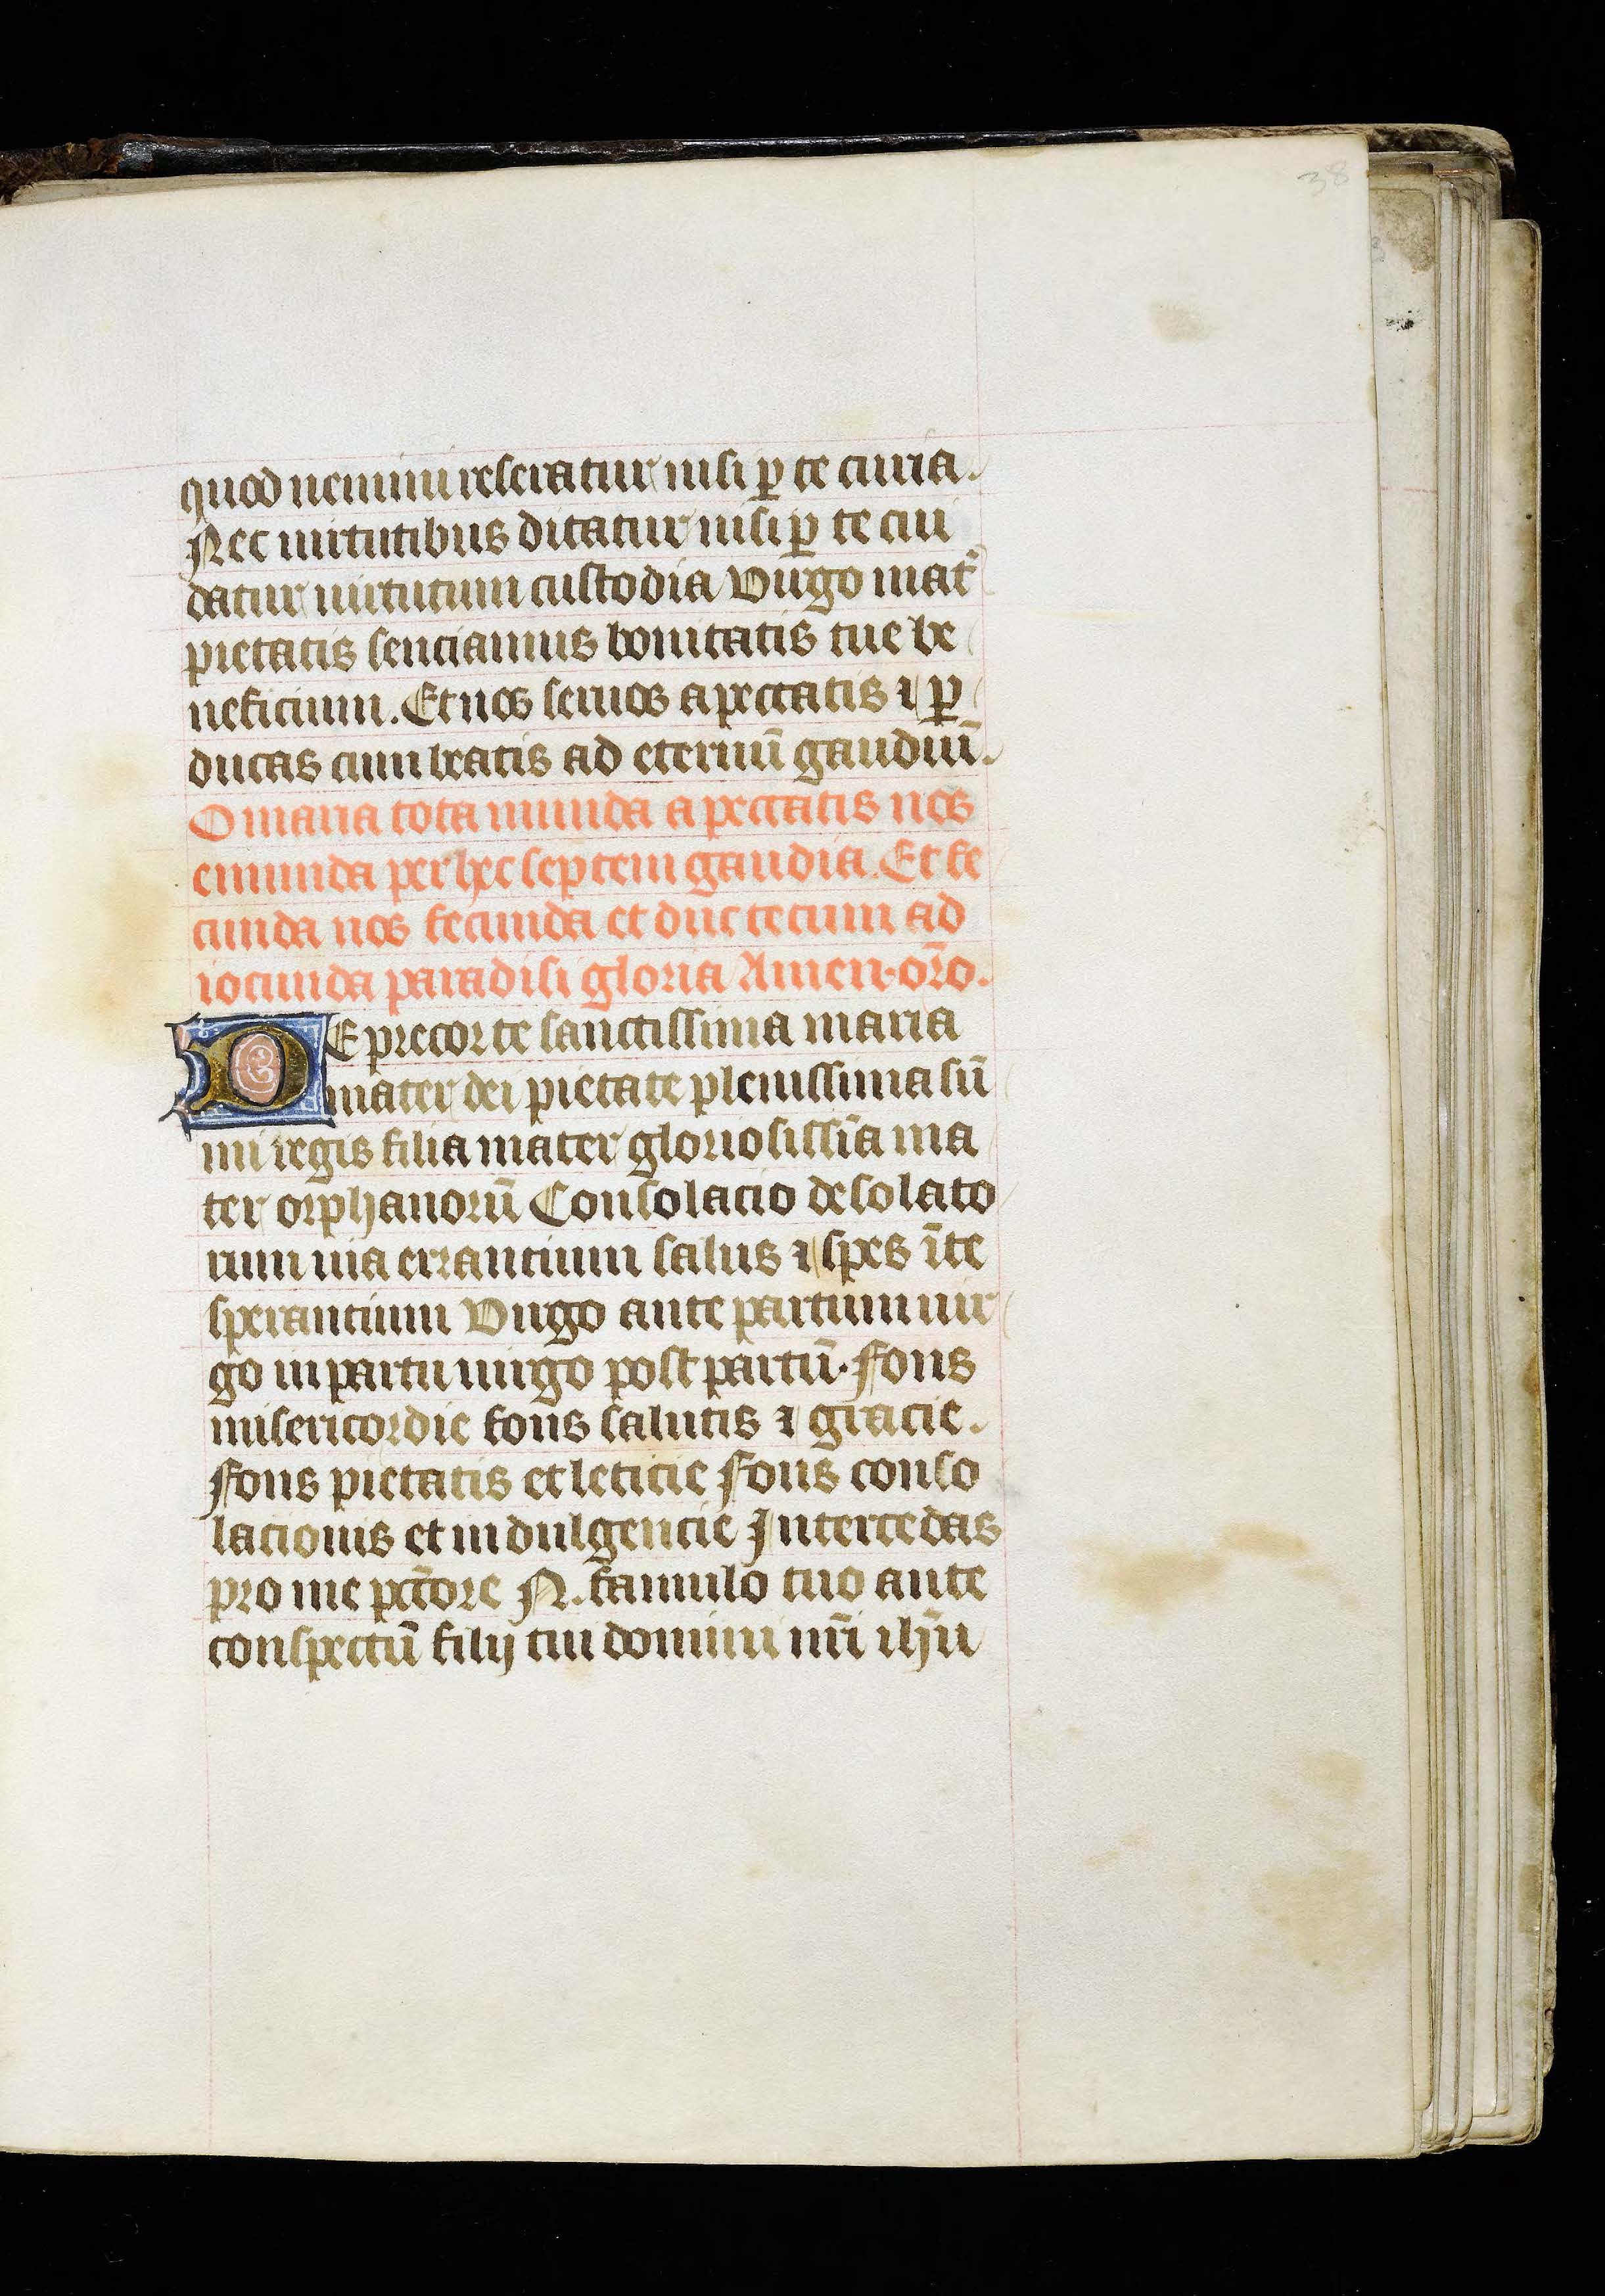 38
quod nemini reseratur nisi ꝑ te curia.
Nec uirtutibus ditatur nisi ꝑ te cui
datur uirtutum custodia Virgo mat᷑
pietatis senciamus bonitatis tue be
neficium. Et nos seruos a peccatis ⁊ ꝑ
ducas cum beatis ad eternū gaudiū.
O maria tota munda a peccatis nos
emunda per hec septem gaudia. Et fe
cunda nos fecunda et duc tecum ad
iocunda paradisi gloria Amen. or̄o.
DE precor te sanctissima maria
mater dei pietate plenissima sū
mi regis filia mater gloriosissīa ma
ter orphanorū Consolacio desolato
rum uia errancium salus ⁊ spes īte
sperancium Virgo ante partum uir
go in partu uirgo post partū. Fons
misericordie fons salutis ⁊ gracie.
Fons pietatis et leticie Fons conso
lacionis et indulgencie Intercedas
pro me pctōre N. famulo tuo ante
conspectū filij tui domini nr̄i ihū